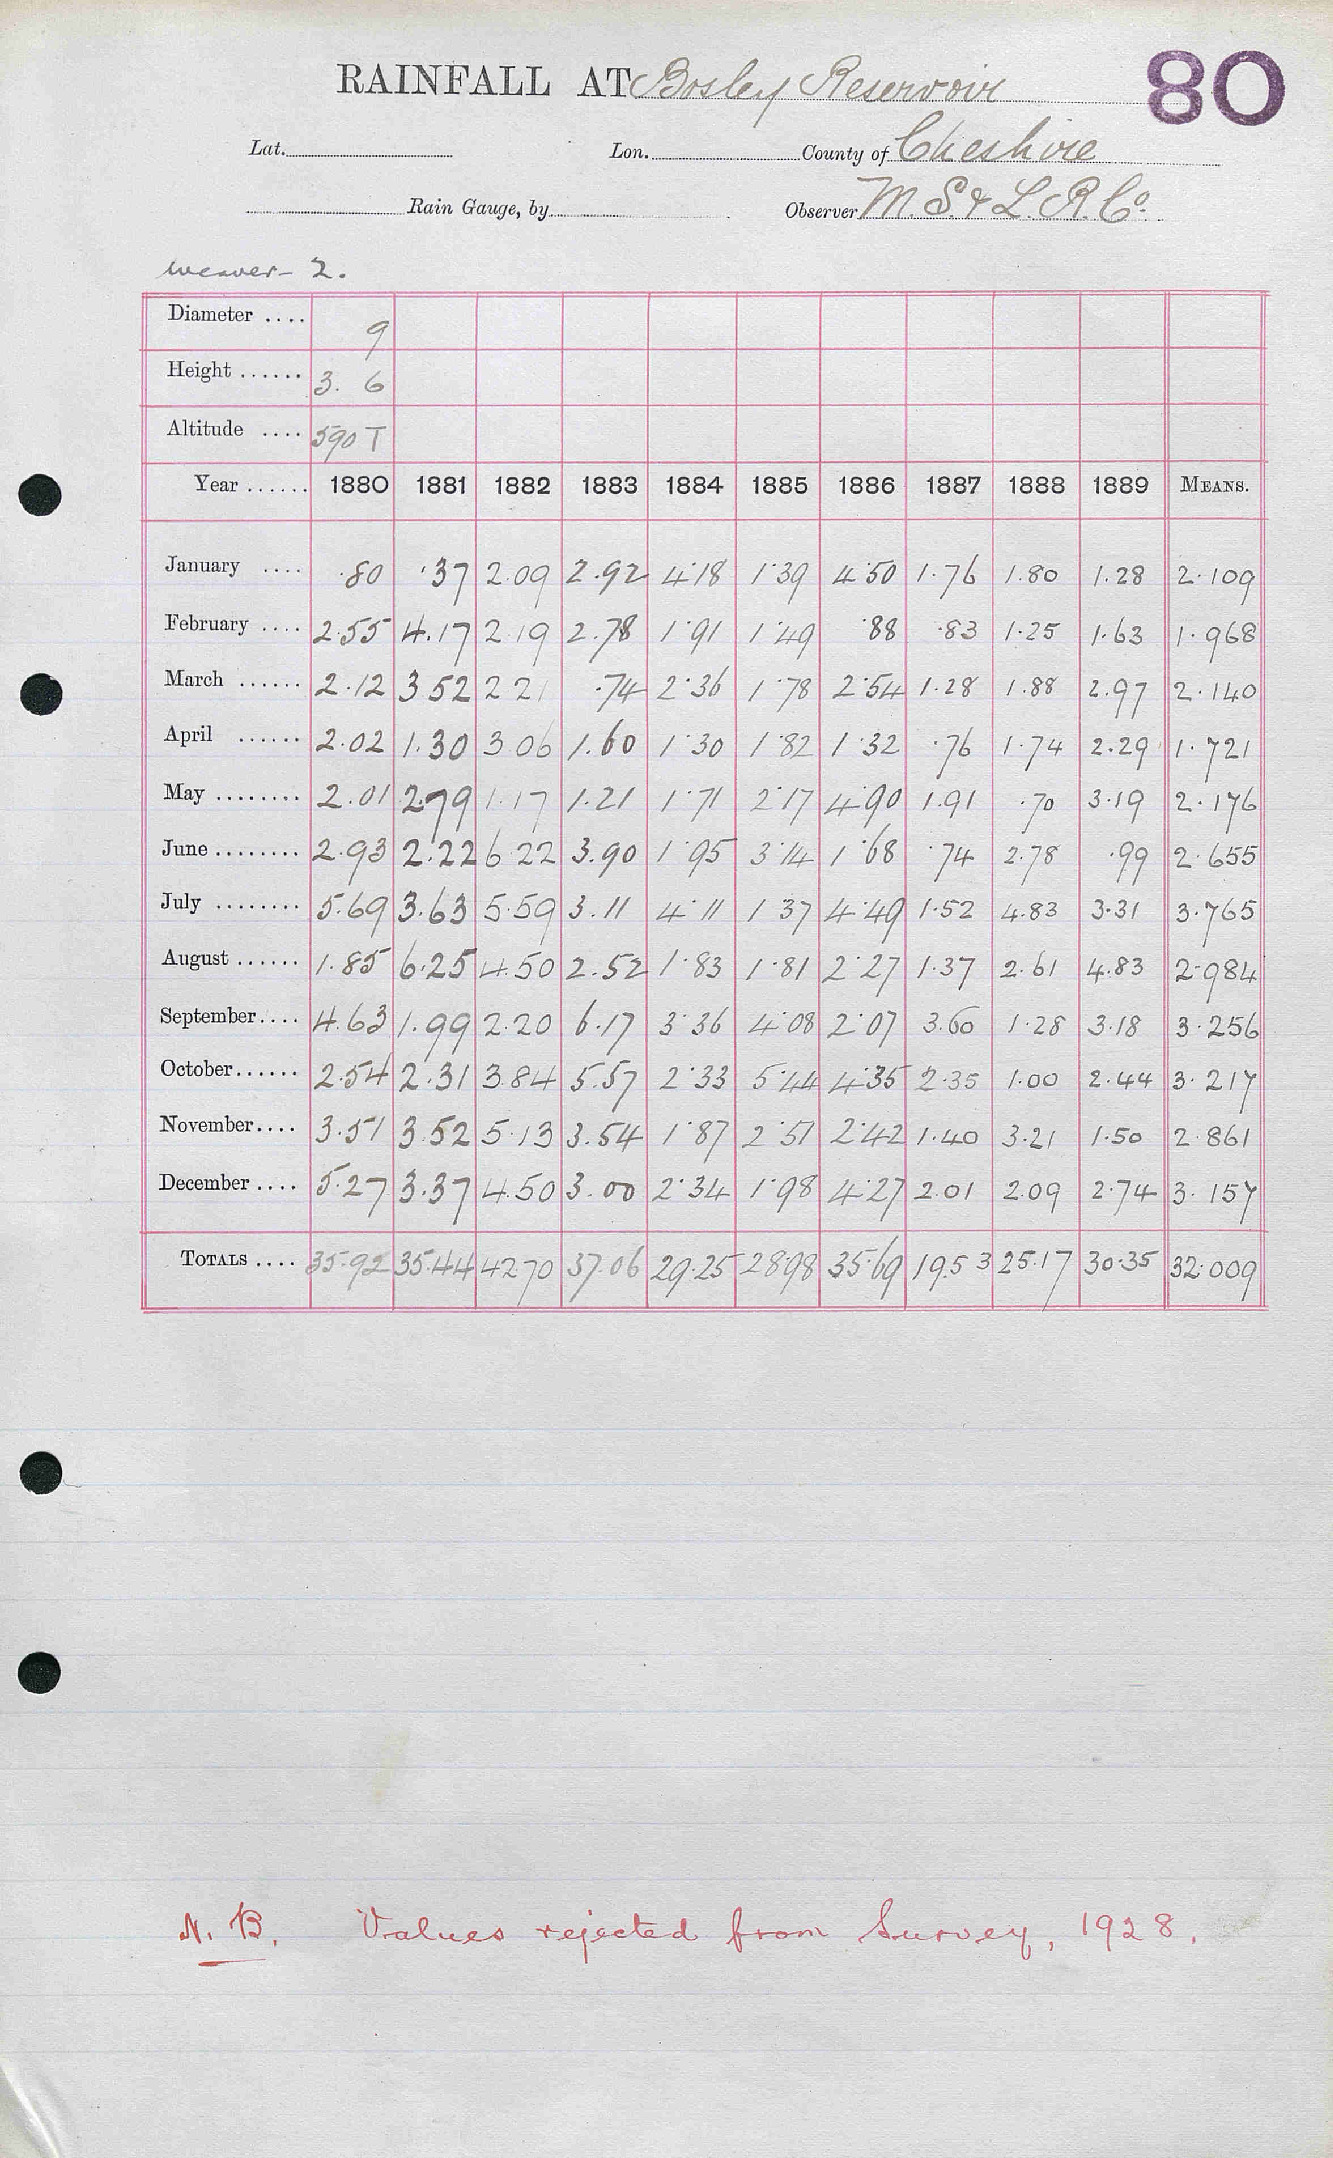 RAINFALL AT Bosley Reservoir 80
Lat. Lon. County of Cheshire
Rain Gauge, by Observer M. S. & L. R. Co.
Weaver - 2.
Diameter .... 9
Height ...... 3. 6
Altitude .... 590 T
Year ...... 1880 1881 1882 1883 1884 1885 1886 1887 1888 1889 MEANS.
January .... .80 .37 2.09 2.92 4.18 1.39 4.50 1.76 1.80 1.28 2.109
February .... 2.55 4.17 2.19 2.78 1.91 1.49 .88 .83 1.25 1.63 1.968
March ...... 2.12 3 52 2 21 .74 2.36 1.78 2.54 1.28 1.88 2.97 2.140
April ...... 2.02 1.30 3.06 1.60 1.30 1.82 1.32 .76 1.74 2.29 1.721
May ........ 2.01 2.79 1.17 1.21 1.71 2.17 4.90 1.91 .70 3.19 2.176
June ........ 2.93 2.22 6 22 3.90 1.95 3.14 1.68 .74 2.78 .99 2.655
July ........ 5.69 3.63 5.59 3.11 4.11 1.37 4.49 1.52 4.83 3.31 3.765
August ...... 1.85 6.25 4.50 2.52 1.83 1.81 2.27 1.37 2.61 4.83 2.984
September.... 4.63 1.99 2.20 6.17 3.36 4.08 2.07 3.60 1.28 3.18 3.256
October...... 2.54 2.31 3.84 5.57 2.33 5.44 4.35 2.35 1.00 2.44 3.217
November.... 3.51 3.52 5.13 3.54 1.87 2.51 2.42 1.40 3.21 1.50 2.861
December .... 5.27 3.37 4.50 3.00 2.34 1.98 4.27 2.01 2.09 2.74 3.157
TOTALS .... 35.92 35.44 42.70 37.06 29.25 28.98 35.69 19.53 25.17 30.35 32.009
N. B. Values rejected from Survey, 1928.